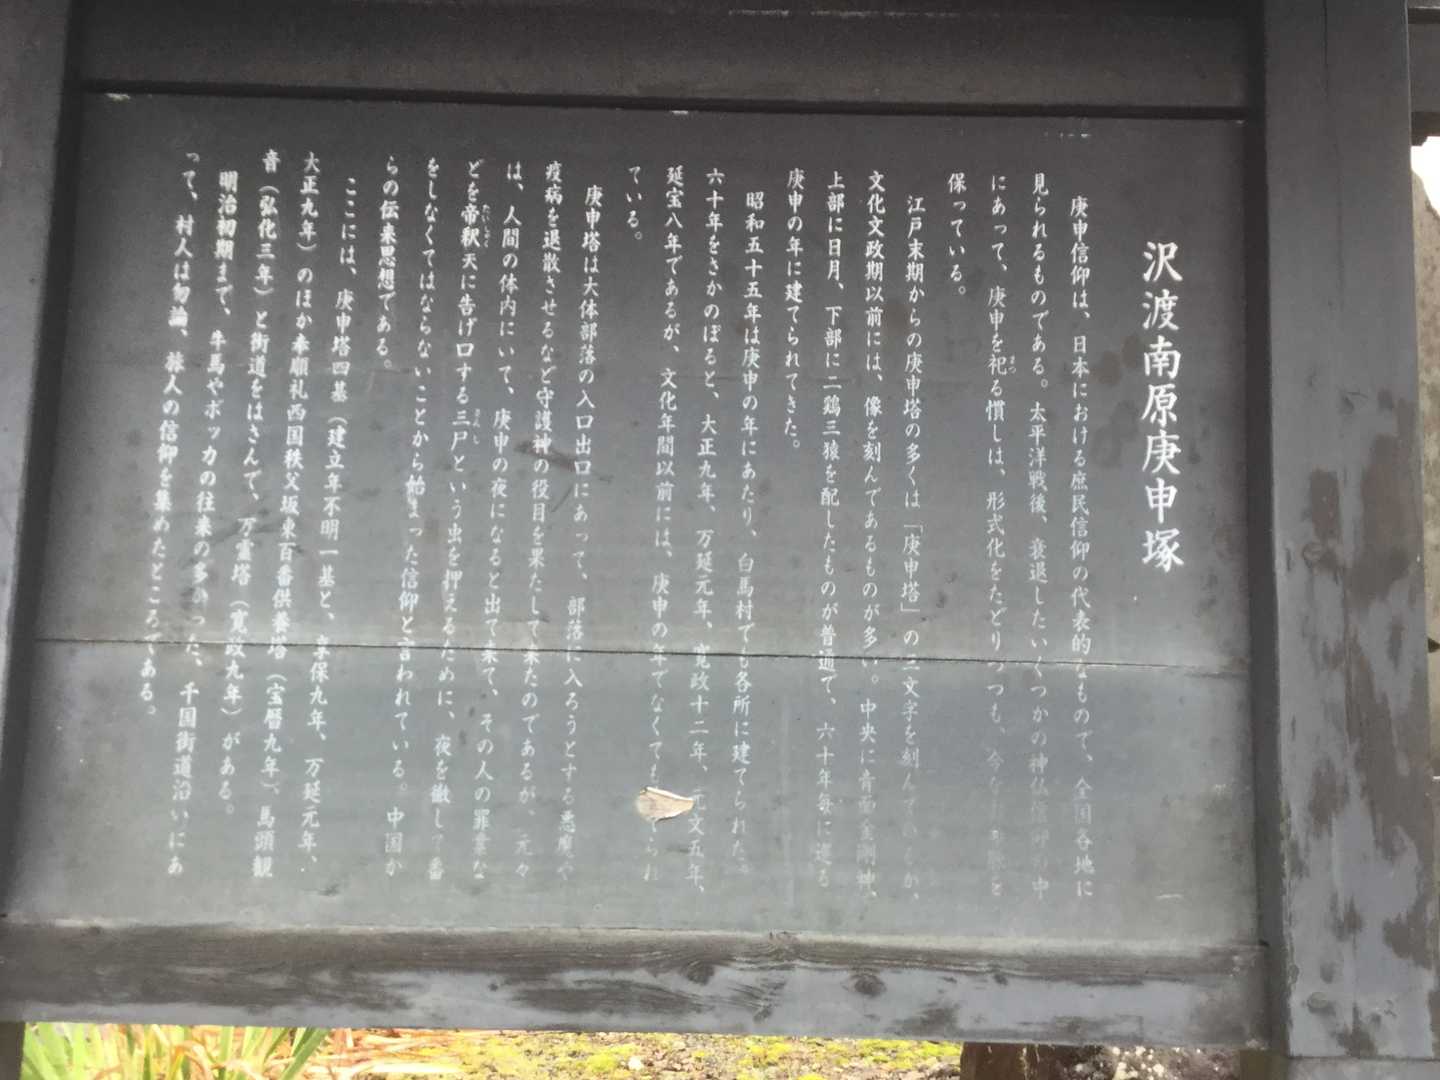 沢渡南原庚申塚
庚申信仰は、日本における庶民信仰の代表的なもので、全国各地に
見られるものである。太平洋戦後、衰退したいくつかの神仏信仰の中
にあって、庚申を祀る慣しは、形式化をたどりつつも、今なお
まつ
保っている。
江戸末期からの庚申塔の多くは「庚申塔」の三文字を刻んでいるが、
文化文政期以前には、像を刻んであるものが多い。中央に青面金剛神、
上部に日月、下部に二鶏三猿を配したものが普通で、六十年毎に造る
庚申の年に建てられてきた。
昭和五十五年は庚申の年にあたり、白馬村でも各所に建てられた。
六十年をさかのぼると、大正九年、万延元年、寛政十二年、元文五年、
延宝八年であるが、文化年間以前には、庚申の年でなくても
られ
ている。
庚申塔は大体部落の入口出口にあって、部落に入ろうとする悪魔や
疫病を退散させるなど守護神の役目を果たして来たのであるが、元々
は、人間の体内にいて、庚申の夜になると出て来て、その人の罪業な
どを帝釈天に告げ口する三尸という虫を押えるために、夜を徹して番
たいしゃく
さんし
をしなくてはならないことから始まった信仰と言われている。中国か
らの伝来思想である。
ここには、庚申塔四基（建立年不明一基と、享保九年、万延元年、
大正九年）のほか奉順礼西国秩父坂東百番供養塔（宝暦九年）、馬頭観
音（弘化三年）と街道をはさんで、万霊塔（寛政九年）がある。
明治初期まで、牛馬やボッカの往来の多かった、千国街道沿いにあ
って、村人は勿論、旅人の信仰を集めたところである。